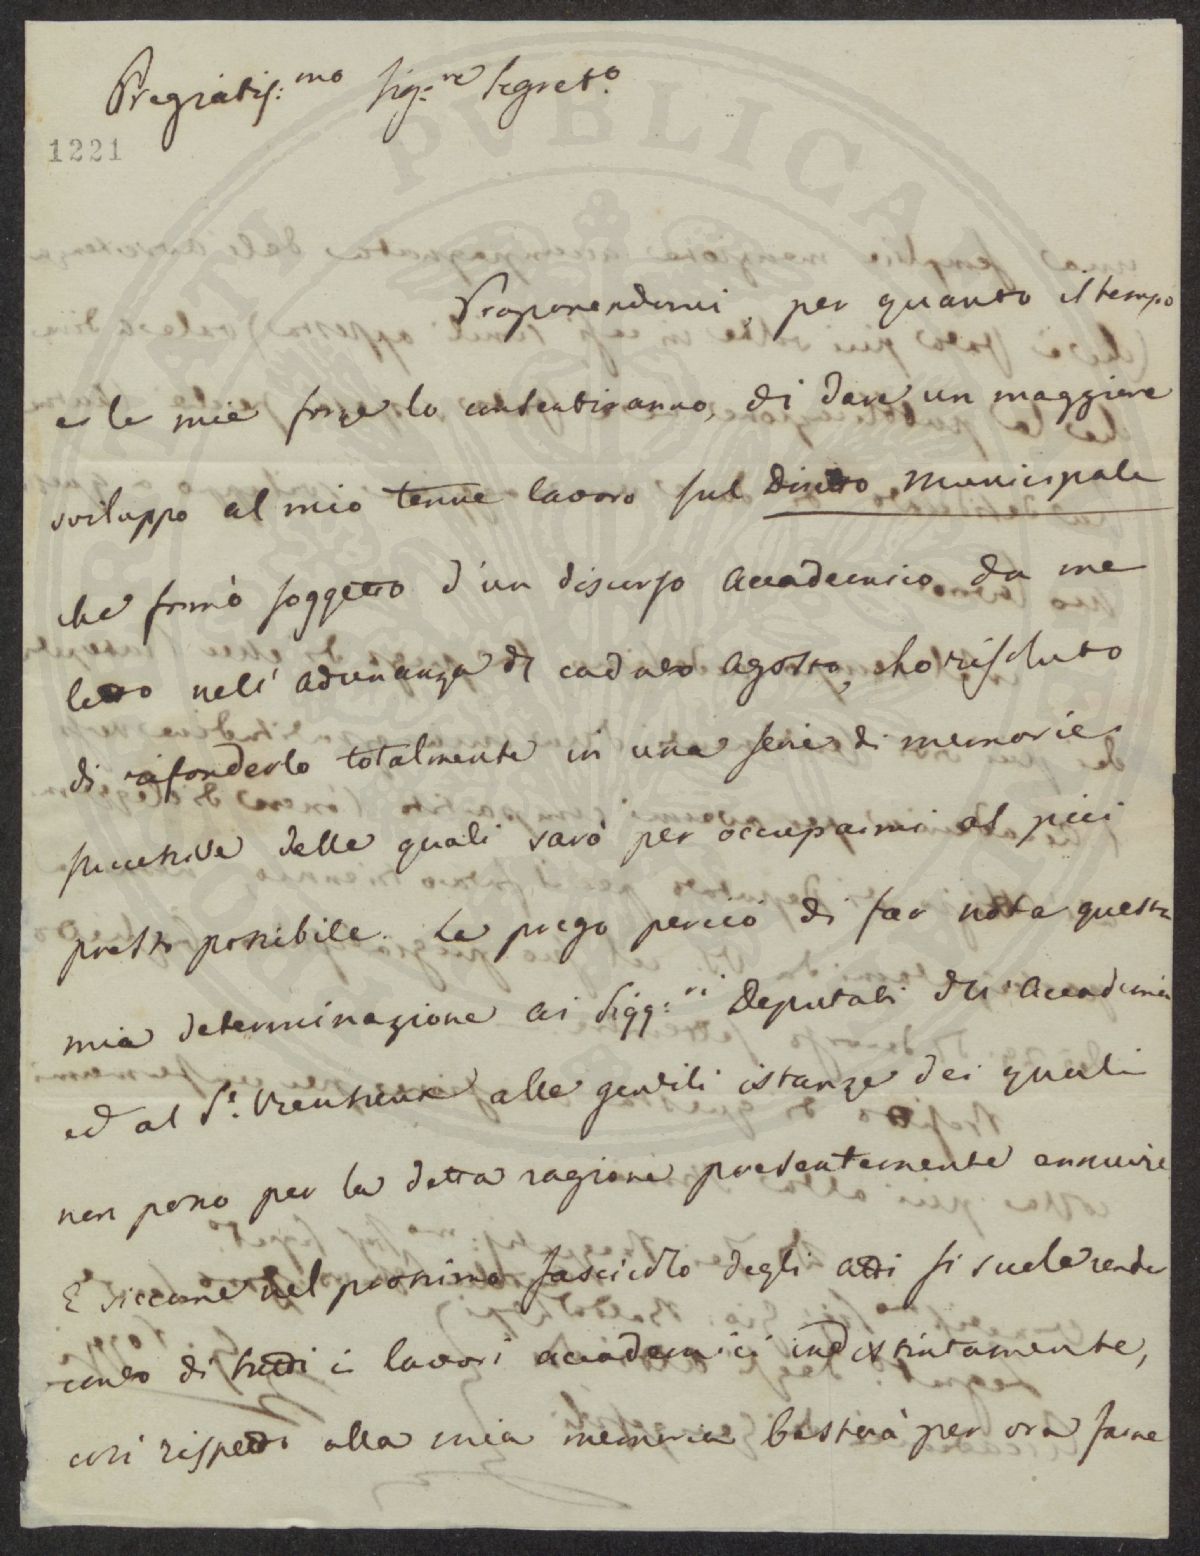 Pregiatis:mo Sig:re Segret.o
1221
Proponendomi, per quanto il tempo
e le mie forze lo consentiranno, di dare un maggiore
sviluppo al mio tenue lavoro sul Diritto Municipale
che formò soggetto d'un discorso accademico da me
letto nell'adunanza di caduto Agosto, ho risoluto
di rifonderlo totalmente in una serie di memorie
successive delle quali sarò per occuparmi al più
presto possibile. La prego perciò di far nota questa
mia determinazione ai Sigg:ri Deputati dell'Accademia
ed al Sr. alle gentili istanze dei quali
non posso per la detta ragione presentemente annuire
E siccome nel prossimo fascicolo degli atti si suole render
conto di tutti i lavori accademici indistintamente,
così rispetto alla mia memoria basterà per ora farne